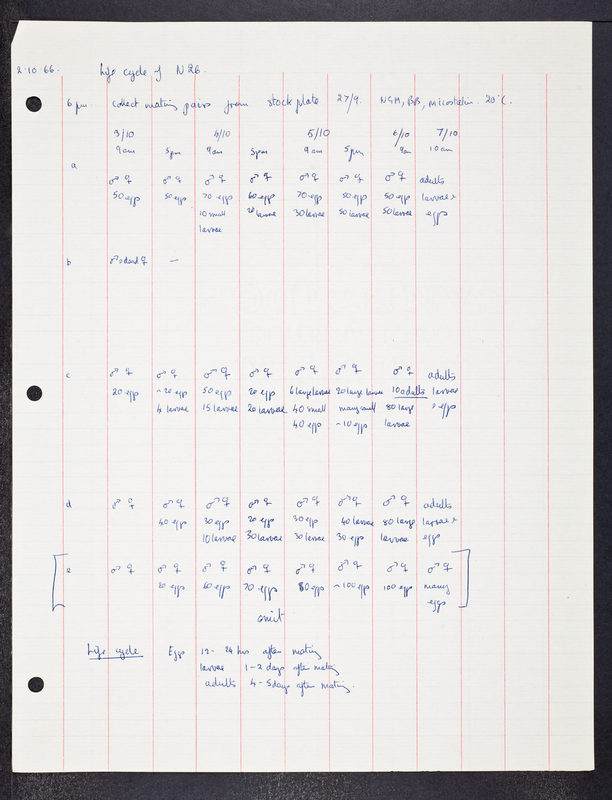 2·10·66. Life cycle of N26.
6 pm. collect mating pairs from stock plate 27/9. NGM, BB, mycostatin. 20°C.
3/10 4/10 5/10 6/10 7/10
9am 5pm 9am 5pm 9am 5pm 9am 10am
a
♂ ♀ ♂ ♀ ♂ ♀ ♂ ♀ ♂ ♀ ♂ ♀ ♂ ♀ adults
50 eggs 50 eggs 70 eggs 60 eggs 70 eggs 50 eggs 50 eggs larvae +
10 small 20 larvae 30 larvae 50 larvae 50 larvae eggs
larvae
b ♂ dead ♀ —
c ♂ ♀ ♂ ♀ ♂ ♀ ♂ ♀ ♂ ♀ ♂ ♀ ♂ ♀ adults
20 eggs ~20 eggs 50 eggs 20 eggs 6 large larvae 20 large larvae 10 adults larvae
4 larvae 15 larvae 20 larvae 40 small many small 80 large + eggs
40 eggs ~10 eggs larvae
d ♂ ♀ ♂ ♀ ♂ ♀ ♂ ♀ ♂ ♀ ♂ ♀ ♂ ♀ adults
40 eggs 30 eggs 20 eggs 30 eggs 40 larvae 80 large larvae +
10 larvae 30 larvae 30 larvae 30 eggs larvae eggs
e ♂ ♀ ♂ ♀ ♂ ♀ ♂ ♀ ♂ ♀ ♂ ♀ ♂ ♀ ♂ ♀
80 eggs 60 eggs 70 eggs 80 eggs ~100 eggs 100 eggs many
eggs
omit
Life cycle Eggs 12 - 24 hrs after mating
larvae 1 - 2 days after mating
adults 4 - 5 days after mating.